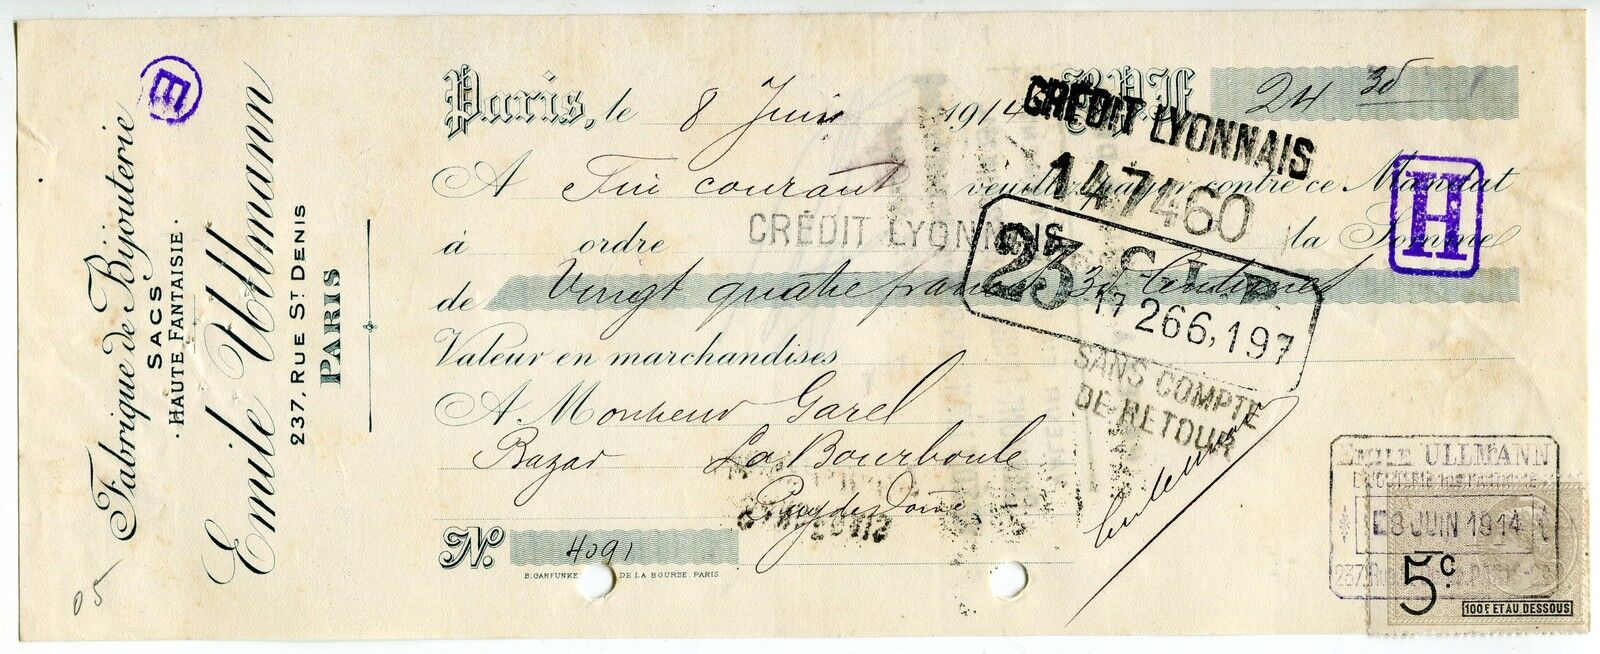 Fabrique de Bijouterie
SACS
HAUTE FANTAISIE.
Emile Ullmann
237, RUE ST DENIS
PARIS
E
Paris, le 8 Juin 1914 B.P.F. 24 35
CRÉDIT LYONNAIS
147460
A Fin courant veuillez payer contre ce Mandat
H
à ordre CRÉDIT LYONNAIS la Somme
23
17 266,197
de Vingt quatre francs 35 Centimes
Valeur en marchandises
SANS COMPTE
DE RETOUR
A Monsieur Garel
Bazar La Bourboule
Puy de Dôme
No. 4091
DE LA BOURSE PARIS
EMILE ULLMANN
08 JUIN 1914
5c.
100F ET AU DESSOUS
05